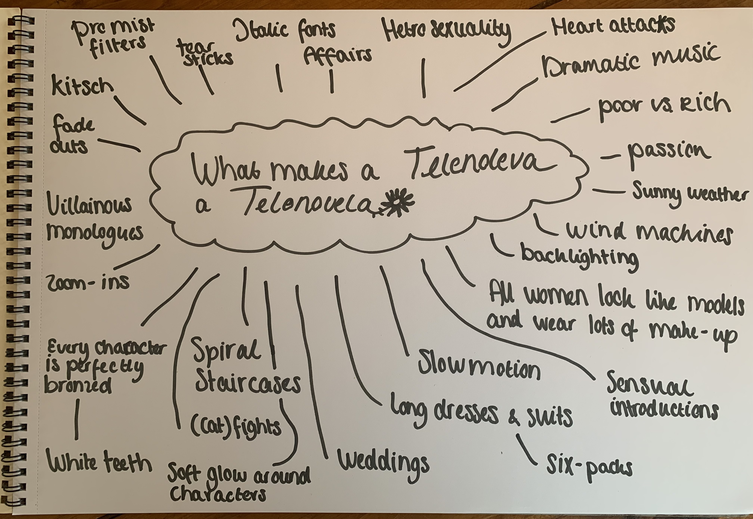 Pro mist
filters
tear
sticks
Italic fonts
Affairs
Metro sexuality
Heart attacks
Dramatic music
poor vs Rich
passion
Sunny weather
wind machines
backlighting
All women look like models
and wear lots of make-up
Sensual
introductions
Slow motion
Long dresses & suits
Six-packs
Weddings
Spiral
Staircases
(cat)fights
Soft glow around
characters
Every character
is perfectly
bronzed
White teeth
Zoom-ins
Villainous
monologues
fade
outs
kitsch
What makes a Telenoleva
a Telenovela